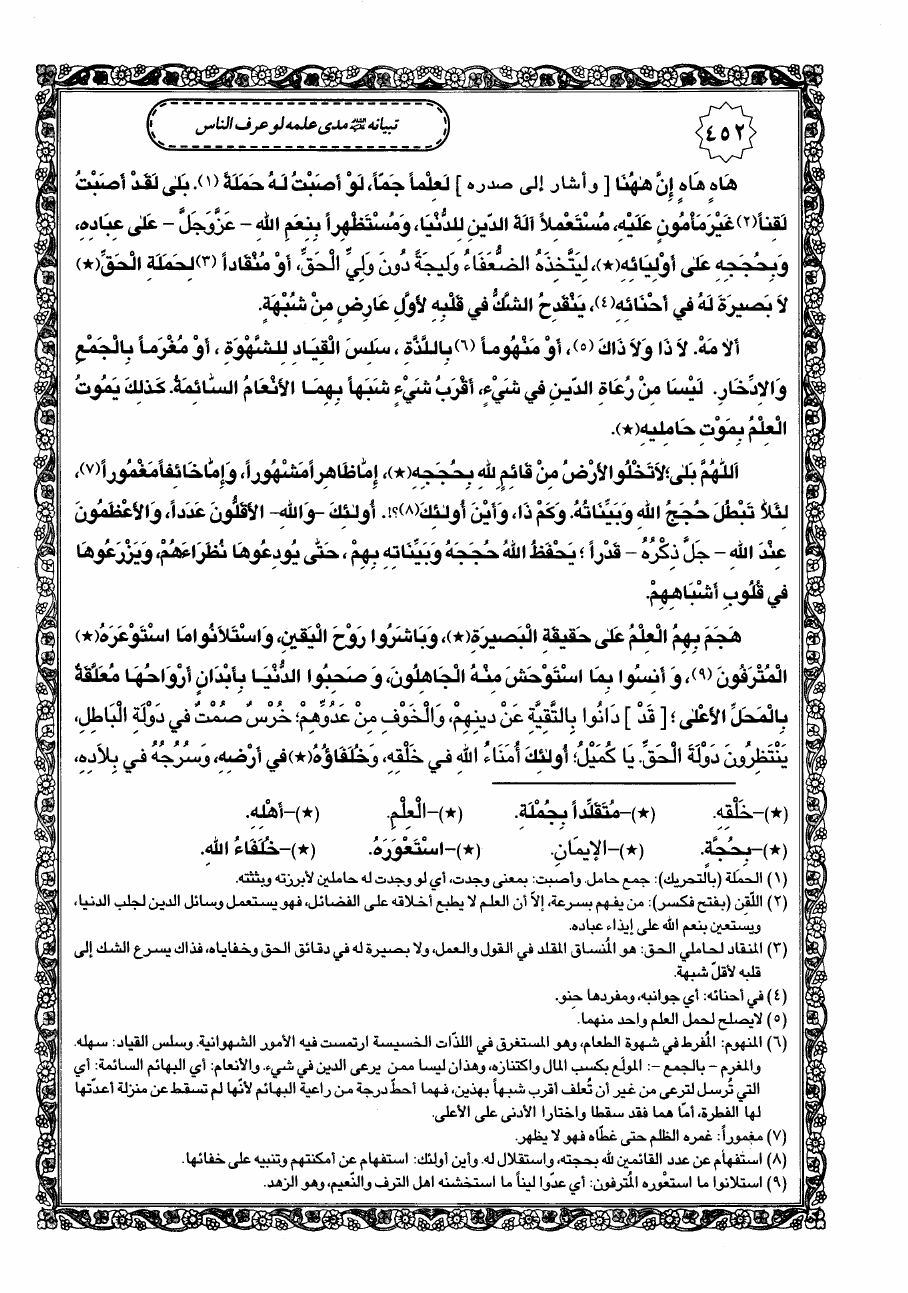 ٤٥٢
تبيانه عليه السلام مدى علمه لو عرف الناس
هَاهِ هَاهِ إِنَّ هٰهُنَا [ وأشار إلى صدره ] لَعِلْماً جَمّاً، لَوْ أصَبْتُ لَهُ حَمَلَةً (١). بَلٰى لَقَدْ أصَبْتُ
لَقِناً(٢) غَيْرَ مَأمُونٍ عَلَيْهِ، مُسْتَعْمِلاً آلَةَ الدّينِ لِلدُّنْيَا، وَمُسْتَظْهِراً بِنِعَمِ اللهِ – عَزَّوَجَلَّ – عَلىٰ عِبَادِهِ،
وَبِحُجَجِهِ عَلىٰ أوْلِيَائِهِ(★)، لِيَتَّخِذَهُ الضُّعَفَاءُ وَليجَةً دُونَ وَلِيِّ الْحَقِّ، أوْ مُنْقَاداً (٣)لِحَمَلَةِ الْحَقِّ(★)
لاَ بَصيرَةَ لَهُ في أحْنَائِهِ(٤)، يَنْقَدِحُ الشَّكُّ في قَلْبِهِ لأوَّلِ عَارِضٍ مِنْ شُبْهَةٍ.
ألاَ مَهْ. لاَ ذَا وَلاَ ذَاكَ (٥)، أوْ مَنْهُوماً (٦) بِاللَّذَّةِ ، سَلِسَ الْقِيَادِ لِلشَّهْوَةِ ، أوْ مُغْرَماً بِالْجَمْعِ
وَالإدِّخَارِ. لَيْسَا مِنْ رُعَاةِ الدّينِ في شَيْءٍ، أقْرَبُ شَيْءٍ شَبَهاً بِهِمَا الأنْعَامُ السَّائِمَةُ. كَذلِكَ يَمُوتُ
الْعِلْمُ بِمَوْتِ حَامِليهِ(★).
اَللّهُمَّ بَلٰى؛ لاَتَخْلُو الأرْضُ مِنْ قَائِمٍ للهِ بِحُجَجِهِ(★)، إمّاظَاهِراًمَشْهُوراً، وَإمّاخَائِفاًمَغْمُوراً(٧)،
لِئَلاَّ تَبْطُلَ حُجَجُ اللهِ وَبَيِّنَاتُهُ. وَكَمْ ذَا، وَأيْنَ أولٰئِكَ(٨)؟!. أُولٰئِكَ -وَاللهِ- الأقَلُّونَ عَدَداً، وَالأعْظَمُونَ
عِنْدَ اللهِ – جَلَّ ذِكْرُهُ – قَدْراً ؛ يَحْفَظُ اللهُ حُجَجَهُ وَبَيِّنَاتِهِ بِهِمْ، حَتّٰى يُودِعُوهَا نُظَرَاءَهُمْ، وَيَزْرَعُوهَا
في قُلُوبِ أشْبَاهِهِمْ.
هَجَمَ بِهِمُ الْعِلْمُ عَلىٰ حَقيقَةِ الْبَصيرَةِ(★)، وَبَاشَرُوا رَوْحَ الْيَقينِ، وَاسْتَلاَنُوامَا اسْتَوْعَرَهُ(★)
الْمُتْرَفُونَ (٩)، وَ أنِسُوا بِمَا اسْتَوْحَشَ مِنْهُ الْجَاهِلُونَ، وَ صَحِبُوا الدُّنْيَا بِأبْدَانٍ أرْوَاحُهَا مُعَلَّقَةٌ
بِالْمَحَلِّ الأعْلىٰ ؛ [ قَدْ ] دَانُوا بِالتَّقِيَّةِ عَنْ دينِهِمْ، وَالْخَوْفِ مِنْ عَدُوِّهِمْ؛ خُرْسٌ صُمْتٌ في دَوْلَةِ الْبَاطِلِ،
يَنْتَظِرُونَ دَوْلَةَ الْحَقِّ. يَا كُمَيْلُ؛ أُولٰئِكَ أُمَنَاءُ اللهِ في خَلْقِهِ، وَخُلَفَاؤُهُ(★)في أرْضِهِ، وَسُرُجُهُ في بِلاَدِهِ،
(★)–خَلْقِهِ. (★)–مُتَقَلِّداً بِجُمْلَةِ. (★)–الْعِلْمِ. (★)–أهْلِهِ.
(★)–بِحُجَّةٍ. (★)–الإيمَانِ. (★)–اسْتَعْوَرَهُ. (★)–خُلَفَاءُ اللهِ.
(١) الحمَلة (بالتحريك): جمع حامل. وأصبت: بمعنى وجدت، أي لو وجدت له حاملين لأبرزته وبثثته.
(٢) اللّقِن (بفتح فكسر): من يفهم بسرعة، إلاّ أن العلم لا يطبع أخلاقه على الفضائل، فهو يستعمل وسائل الدين لجلب الدنيا،
ويستعين بنعم الله على إيذاء عباده.
(٣) المنقاد لحاملي الحق: هو المُنساق المقلد في القول والعمل، ولا بصيرة له في دقائق الحق وخفاياه، فذاك يسرع الشك إلى
قلبه لأقلّ شبهة.
(٤) في أحنائه: أي جوانبه، ومفردها حِنو.
(٥) لايصلح لحمل العلم واحد منهما.
(٦) المنهوم: المُفرط في شهوة الطعام، وهو المستغرق في اللذّات الخسيسة ارتمست فيه الأمور الشهوانية. وسلس القياد: سهله.
والمغرم – بالجمع –: المولَع بكسب المال واكتنازه، وهذان ليسا ممن يرعى الدين في شيء. والأنعام: أي البهائم السائمة: أي
التي تُرسل لترعى من غير أن تُعلف أقرب شبهاً بهذين، فهما أحطّ درجة من راعية البهائم لأنّها لم تسقط عن منزلة أعدّتها
لها الفطرة، أمّا هما فقد سقطا واختارا الأدنى على الأعلى.
(٧) مغموراً: غمره الظلم حتى غطّاه فهو لا يظهر.
(٨) استفهام عن عدد القائمين لله بحجته، واستقلال له. وأين أولئك: استفهام عن أمكنتهم وتنبيه على خفائها.
(٩) استلانوا ما استعوره المُترفون: أي عدّوا ليناً ما استخشنه اهل الترف والنّعيم، وهو الزهد.